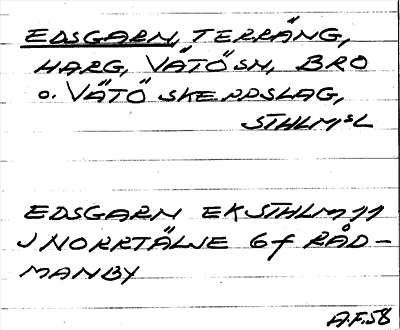 EDSGARN, TERRÄNG,
HARG, VÄTÖ SN, BRO
o. VÄTÖ SKEPPSLAG,
STHLMSL
EDSGARN EK STHLM 11
J NORRTÄLJE 6f RÅD-
MANBY
A.F.58